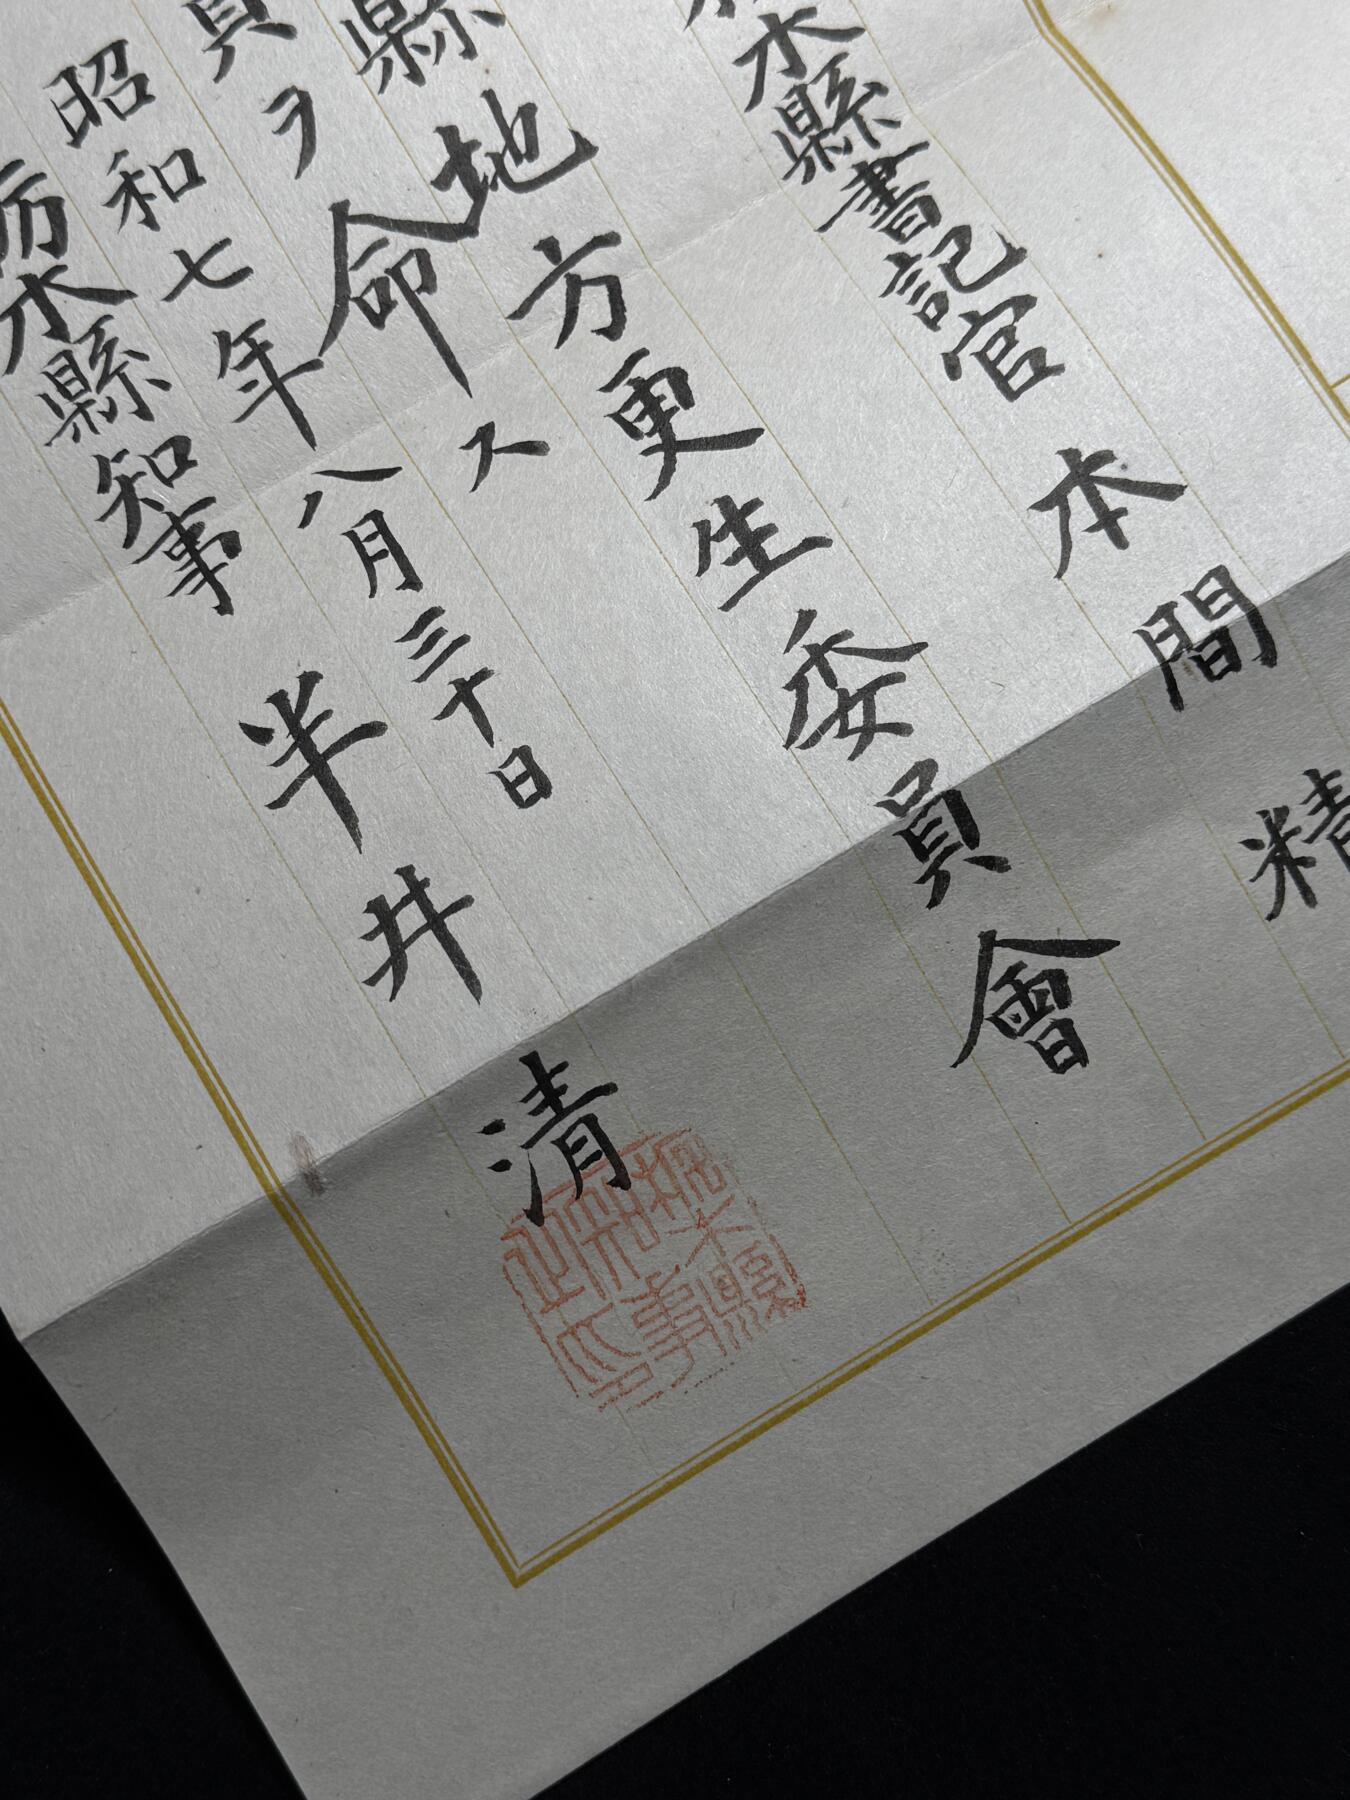 木縣書記官 本間 精
縣地方更生委員會
員ヲ命ス
昭和七年八月三十日
栃木縣知事 半井 清